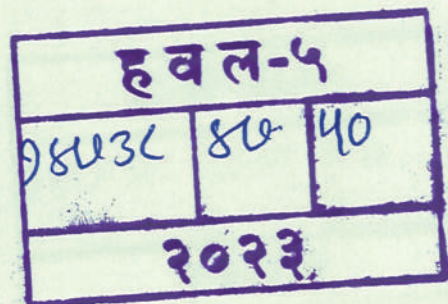 हवल-५
१४७३८ ४७ ५०
२०२३